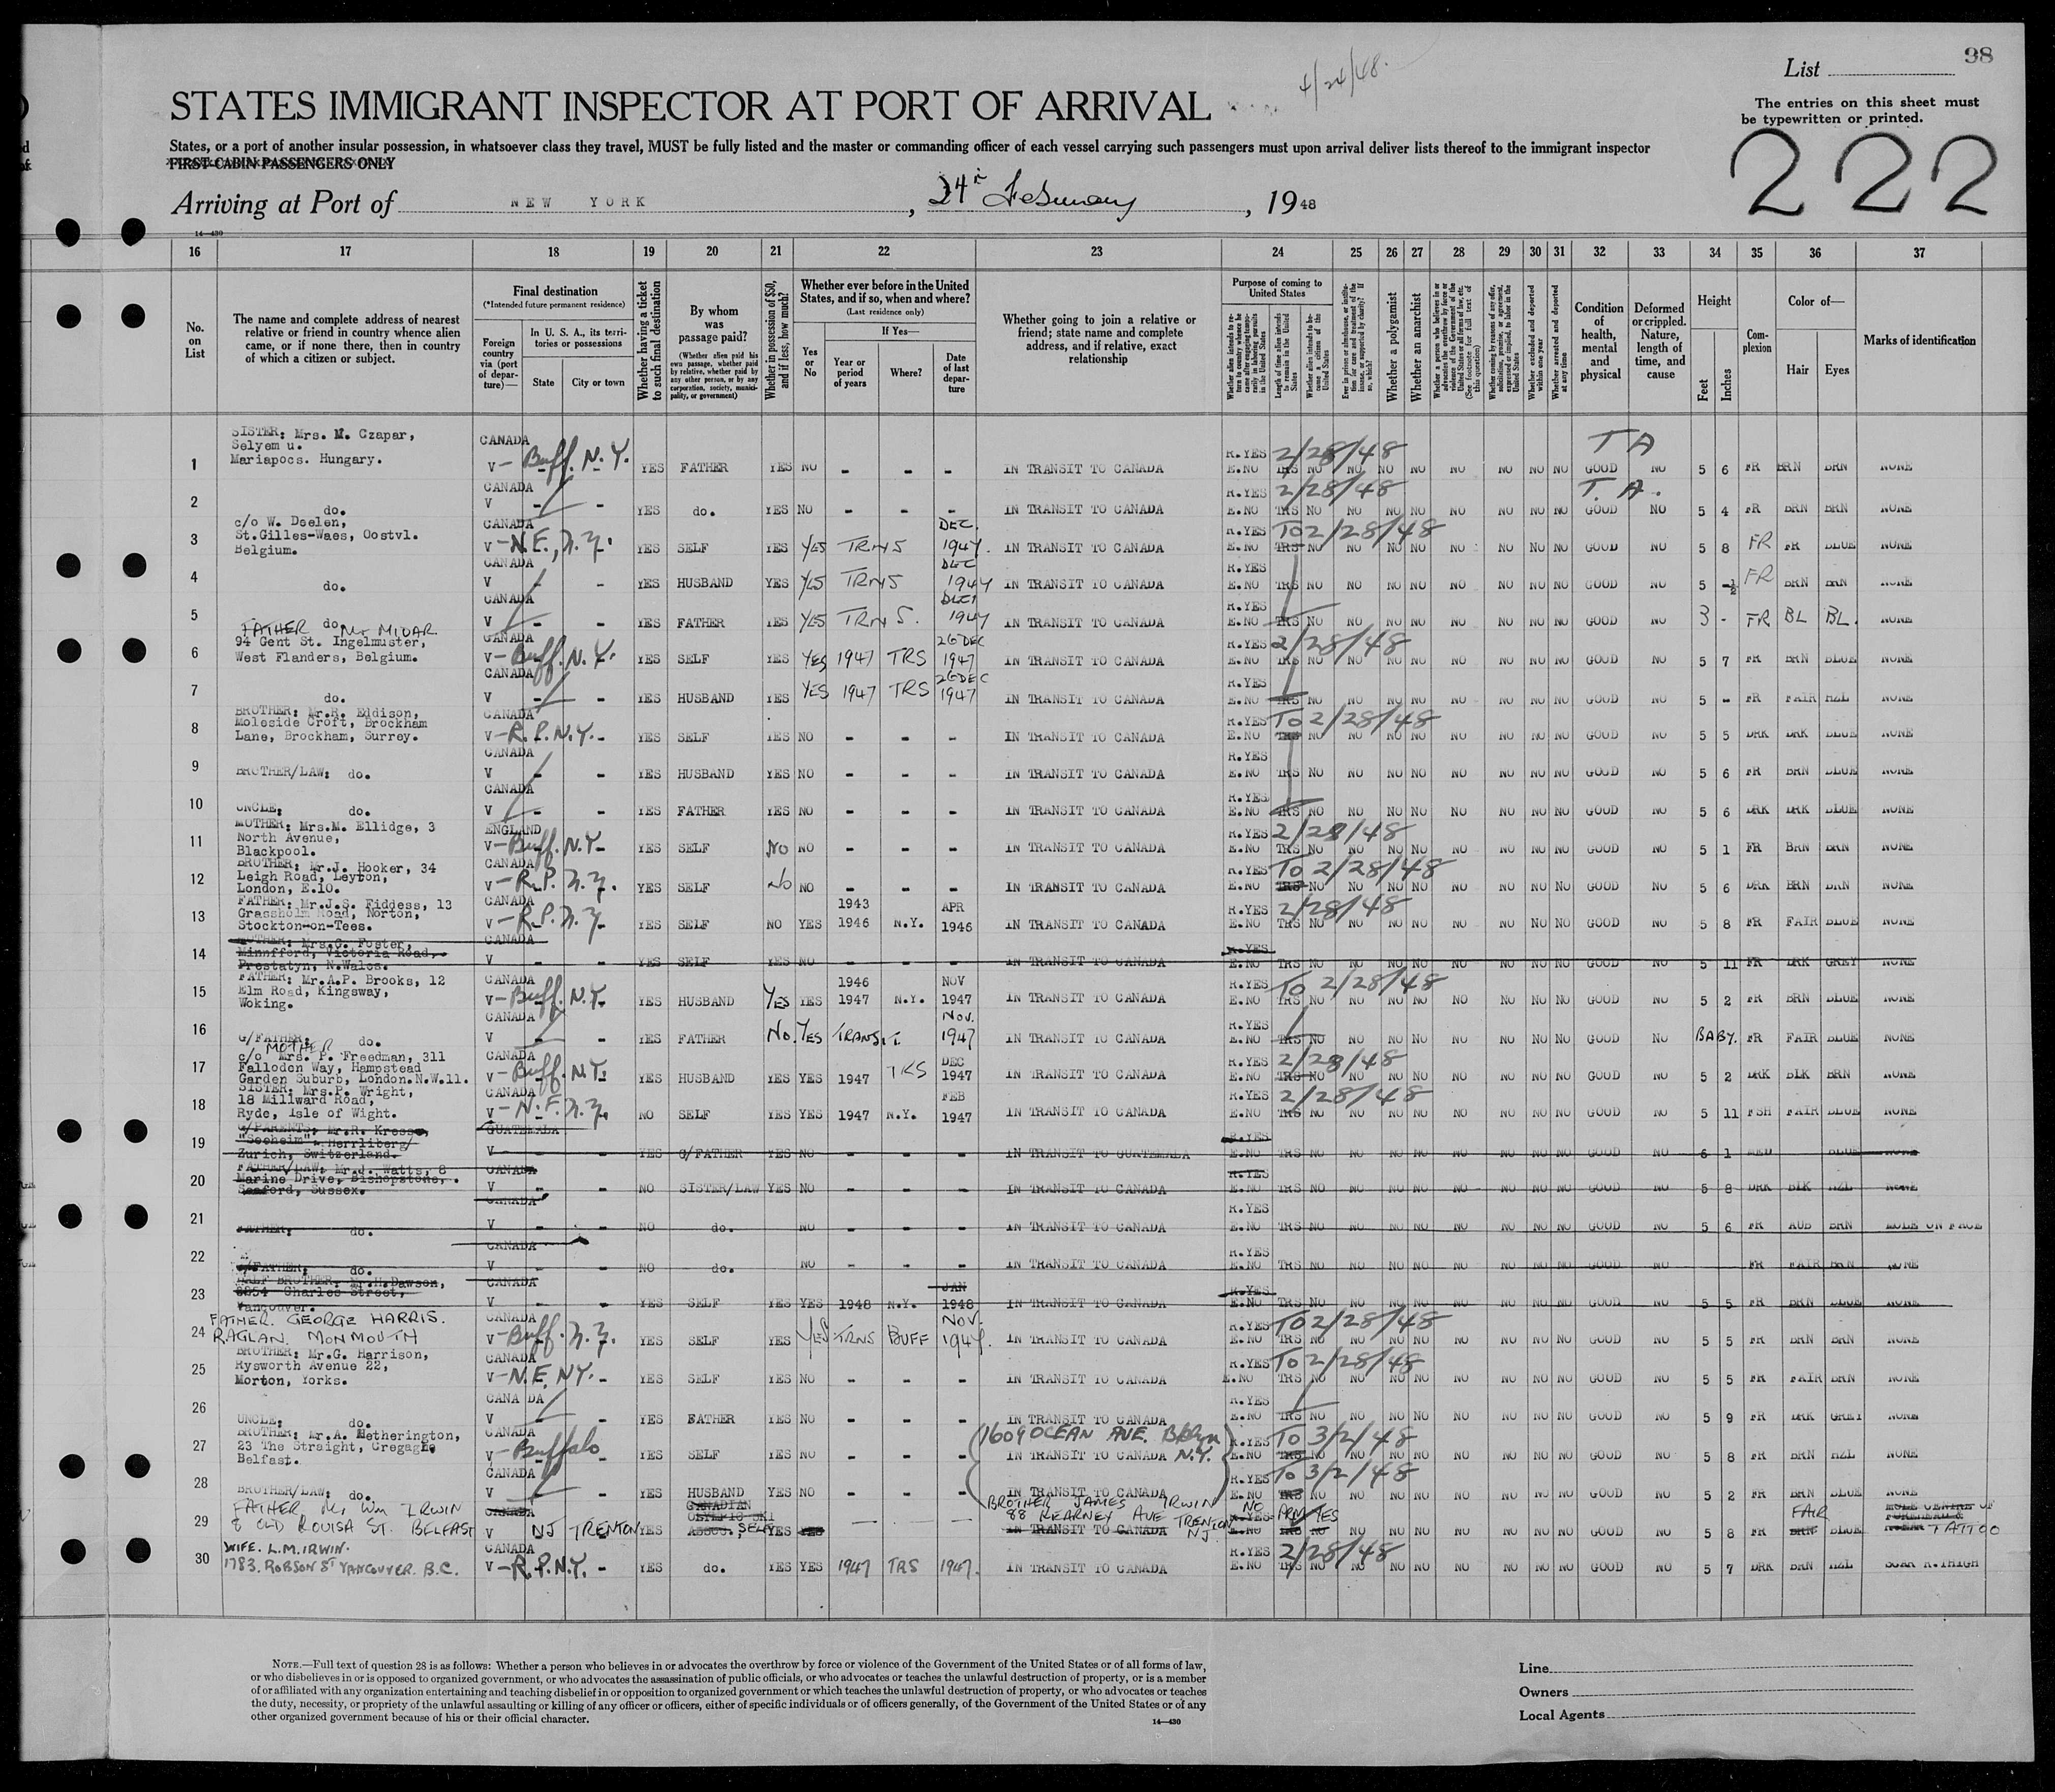 98
List
4/24/48.
STATES IMMIGRANT INSPECTOR AT PORT OF ARRIVAL
The entries on this sheet must
be typewritten or printed.
States, or a port of another insular possession, in whatsoever class they travel, MUST be fully listed and the master or commanding officer of each vessel carrying such passengers must upon arrival deliver lists thereof to the immigrant inspector
FIRST-CABIN PASSENGERS ONLY
222
Arriving at Port of NEW YORK, 24th February, 1948
14—430
16 17 18 19 20 21 22 23 24 25 26 27 28 29 30 31 32 33 34 35 36 37
No. on List
The name and complete address of nearest relative or friend in country whence alien came, or if none there, then in country of which a citizen or subject.
Final destination
(*Intended future permanent residence)
Foreign country via (port of departure)—
In U. S. A., its territories or possessions
State
City or town
Whether having a ticket to such final destination
By whom was passage paid?
(Whether alien paid his own passage, whether paid by relative, whether paid by any other person, or by any corporation, society, municipality, or government)
Whether in possession of $50, and if less, how much?
Whether ever before in the United States, and if so, when and where?
(Last residence only)
Yes or No
If Yes—
Year or period of years
Where?
Date of last departure
Whether going to join a relative or friend; state name and complete address, and if relative, exact relationship
Purpose of coming to United States
Whether a polygamist
Whether an anarchist
Condition of health, mental and physical
Deformed or crippled. Nature, length of time, and cause
Height
Feet
Inches
Complexion
Color of—
Hair
Eyes
Marks of identification
1 SISTER: Mrs. M. Czapar, Selyem u. Mariapocs. Hungary. CANADA V - Buff. N.Y. YES FATHER YES NO - - - IN TRANSIT TO CANADA R.YES E.NO 2/28/48 TRS NO NO NO NO NO NO NO NO GOOD T A NO 5 6 FR BRN BRN NONE
2 do. CANADA V - - YES do. YES NO - - - IN TRANSIT TO CANADA R.YES E.NO 2/28/48 TRS NO NO NO NO NO NO NO NO GOOD T.A. NO 5 4 FR BRN BRN NONE
3 c/o W. Doelen, St.Gilles-Waes, Oostvl. Belgium. CANADA V - N.F., N.Y. YES SELF YES YES TRNS DEC. 1947. IN TRANSIT TO CANADA R.YES E.NO To 2/28/48 TRS NO NO NO NO NO NO NO NO GOOD NO 5 8 FR FR BLUE NONE
4 do. CANADA V - - YES HUSBAND YES YES TRNS DEC 1947 IN TRANSIT TO CANADA R.YES E.NO TRS NO NO NO NO NO NO NO NO GOOD NO 5 -½ FR BRN BRN NONE
5 do. CANADA V - - YES FATHER YES YES TRNS. DEC 1947 IN TRANSIT TO CANADA R.YES E.NO TRS NO NO NO NO NO NO NO NO GOOD NO 3 - FR BL BL. NONE
6 FATHER Mr MIDAR 94 Gent St. Ingelmuster, West Flanders, Belgium. CANADA V - Buff. N.Y. YES SELF YES YES 1947 TRS 26 DEC 1947 IN TRANSIT TO CANADA R.YES E.NO 2/28/48 TRS NO NO NO NO NO NO NO NO GOOD NO 5 7 FR BRN BLUE NONE
7 do. CANADA V - - YES HUSBAND YES YES 1947 TRS 26 DEC 1947 IN TRANSIT TO CANADA R.YES E.NO TRS NO NO NO NO NO NO NO NO GOOD NO 5 - FR FAIR HZL NONE
8 BROTHER: Mr.R. Eddison, Moleside Croft, Brockham Lane, Brockham, Surrey. CANADA V - R.P. N.Y. - YES SELF YES NO - - - IN TRANSIT TO CANADA R.YES E.NO To 2/28/48 TRS NO NO NO NO NO NO NO NO GOOD NO 5 5 DRK DRK BLUE NONE
9 BROTHER/LAW: do. CANADA V - - YES HUSBAND YES NO - - - IN TRANSIT TO CANADA R.YES E.NO TRS NO NO NO NO NO NO NO NO GOOD NO 5 6 FR BRN BLUE NONE
10 UNCLE: do. CANADA V - - YES FATHER YES NO - - - IN TRANSIT TO CANADA R.YES E.NO TRS NO NO NO NO NO NO NO NO GOOD NO 5 6 DRK DRK BLUE NONE
11 MOTHER: Mrs.M. Ellidge, 3 North Avenue, Blackpool. ENGLAND V - Buff. N.Y. - YES SELF No NO - - - IN TRANSIT TO CANADA R.YES E.NO 2/28/48 TRS NO NO NO NO NO NO NO NO GOOD NO 5 1 FR BRN BRN NONE
12 BROTHER: Mr.J. Hooker, 34 Leigh Road, Leyton, London, E.10. CANADA V - R.P. N.Y. YES SELF No NO - - - IN TRANSIT TO CANADA R.YES E.NO To 2/28/48 TRS NO NO NO NO NO NO NO NO GOOD NO 5 6 DRK BRN BRN NONE
13 FATHER: Mr.J.S. Fiddess, 13 Grassholm Road, Norton, Stockton-on-Tees. CANADA V - R.P. N.Y. YES SELF NO YES 1943 1946 N.Y. APR 1946 IN TRANSIT TO CANADA R.YES E.NO 2/28/48 TRS NO NO NO NO NO NO NO NO GOOD NO 5 8 FR FAIR BLUE NONE
14 MOTHER: Mrs.G. Foster, Minnfford, Victoria Road, Prestatyn, N.Wales. CANADA V - - YES SELF YES NO - - - IN TRANSIT TO CANADA R.YES E.NO TRS NO NO NO NO NO NO NO NO GOOD NO 5 11 FR DRK GREY NONE
15 FATHER: Mr.A.P. Brooks, 12 Elm Road, Kingsway, Woking. CANADA V - Buff. N.Y. YES HUSBAND YES YES 1946 1947 N.Y. NOV 1947 IN TRANSIT TO CANADA R.YES E.NO To 2/28/48 TRS NO NO NO NO NO NO NO NO GOOD NO 5 2 FR BRN BLUE NONE
16 G/FATHER: do. CANADA V - - YES FATHER No. YES TRANSIT. NOV. 1947 IN TRANSIT TO CANADA R.YES E.NO TRS NO NO NO NO NO NO NO NO GOOD NO BABY. FR FAIR BLUE NONE
17 MOTHER c/o Mrs. P. Freedman, 311 Falloden Way, Hampstead Garden Suburb, London.N.W.11. CANADA V - Buff. N.Y. YES HUSBAND YES YES 1947 TRS DEC 1947 IN TRANSIT TO CANADA R.YES E.NO 2/28/48 TRS NO NO NO NO NO NO NO NO GOOD NO 5 2 DRK BLK BRN NONE
18 SISTER: Mrs.P. Wright, 18 Millward Road, Ryde, Isle of Wight. CANADA V - N.F. N.Y. NO SELF YES YES 1947 N.Y. FEB 1947 IN TRANSIT TO CANADA R.YES E.NO 2/28/48 TRS NO NO NO NO NO NO NO NO GOOD NO 5 11 FSH FAIR BLUE NONE
19 G/PARENTS: Mr.R. Kresse, "Seeheim". Herrliberg/ Zurich, Switzerland. GUATEMALA V - - YES G/FATHER YES NO - - - IN TRANSIT TO GUATEMALA R.YES E.NO TRS NO NO NO NO NO NO NO NO GOOD NO 6 1 MED BLUE NONE
20 FATHER/LAW: Mr.J. Watts, 8 Marine Drive, Bishopstone, Seaford, Sussex. CANADA V - - NO SISTER/LAW YES NO - - - IN TRANSIT TO CANADA R.YES E.NO TRS NO NO NO NO NO NO NO NO GOOD NO 5 8 DRK BLK HZL NONE
21 FATHER: do. CANADA V - - NO do. NO - - - IN TRANSIT TO CANADA R.YES E.NO TRS NO NO NO NO NO NO NO NO GOOD NO 5 6 FR AUB BRN MOLE ON FACE
22 G/FATHER: do. CANADA V - - NO do. NO - - - IN TRANSIT TO CANADA R.YES E.NO TRS NO NO NO NO NO NO NO NO GOOD NO FR FAIR BRN NONE
23 HALF BROTHER: Mr.H.Dawson, Charles Street, Vancouver. CANADA V - - YES SELF YES YES 1948 N.Y. JAN 1948 IN TRANSIT TO CANADA R.YES E.NO TRS NO NO NO NO NO NO NO NO GOOD NO 5 5 FR BRN BLUE NONE
24 FATHER. GEORGE HARRIS. RAGLAN. MONMOUTH CANADA V - Buff. N.Y. YES SELF YES YES TRNS BUFF NOV. 1947. IN TRANSIT TO CANADA R.YES E.NO To 2/28/48 TRS NO NO NO NO NO NO NO NO GOOD NO 5 5 FR BRN BRN NONE
25 BROTHER: Mr.G. Harrison, Rysworth Avenue 22, Morton, Yorks. CANADA V - N.F. NY. - YES SELF YES NO - - - IN TRANSIT TO CANADA R.YES E.NO To 2/28/48 TRS NO NO NO NO NO NO NO NO GOOD NO 5 5 FR FAIR BRN NONE
26 UNCLE: do. CANADA V - - YES FATHER YES NO - - - IN TRANSIT TO CANADA R.YES E.NO TRS NO NO NO NO NO NO NO NO GOOD NO 5 9 FR DRK GREY NONE
27 BROTHER: Mr.A. Hetherington, 23 The Straight, Cregaghe Belfast. CANADA V - Buffalo YES SELF YES NO - - - (1609 OCEAN AVE. Bklyn N.Y.) IN TRANSIT TO CANADA R.YES E.NO To 3/2/48 TRS NO NO NO NO NO NO NO NO GOOD NO 5 8 FR BRN HZL NONE
28 BROTHER/LAW: do. CANADA V - - YES HUSBAND YES NO - - - IN TRANSIT TO CANADA R.YES E.NO To 3/2/48 TRS NO NO NO NO NO NO NO NO GOOD NO 5 2 FR BRN BLUE NONE
29 FATHER Mr Wm IRWIN 8 OLD ROUISA ST. BELFAST CANADA V NJ TRENTON YES CANADIAN OLYMPIC SKI ASSOC. SELF YES YES — — — BROTHER JAMES IRWIN 88 KEARNEY AVE TRENTON NJ IN TRANSIT TO CANADA NO R.YES E.NO PRM YES TRS NO NO NO NO NO NO NO NO GOOD NO 5 8 FR FAIR BRN BLUE MOLE CENTRE OF FOREHEAD & TATTOO
30 WIFE. L.M. IRWIN. 1783. ROBSON ST VANCOUVER. B.C. CANADA V - R.P. N.Y. - YES do. YES YES 1947 TRS 1947. IN TRANSIT TO CANADA R.YES E.NO 2/28/48 TRS NO NO NO NO NO NO NO NO GOOD NO 5 7 DRK BRN HZL SCAR R.THIGH
NOTE.—Full text of question 28 is as follows: Whether a person who believes in or advocates the overthrow by force or violence of the Government of the United States or of all forms of law,
or who disbelieves in or is opposed to organized government, or who advocates the assassination of public officials, or who advocates or teaches the unlawful destruction of property, or is a member
of or affiliated with any organization entertaining and teaching disbelief in or opposition to organized government or which teaches the unlawful destruction of property, or who advocates or teaches
the duty, necessity, or propriety of the unlawful assaulting or killing of any officer or officers, either of specific individuals or of officers generally, of the Government of the United States or of any
other organized government because of his or their official character.
14—430
Line
Owners
Local Agents